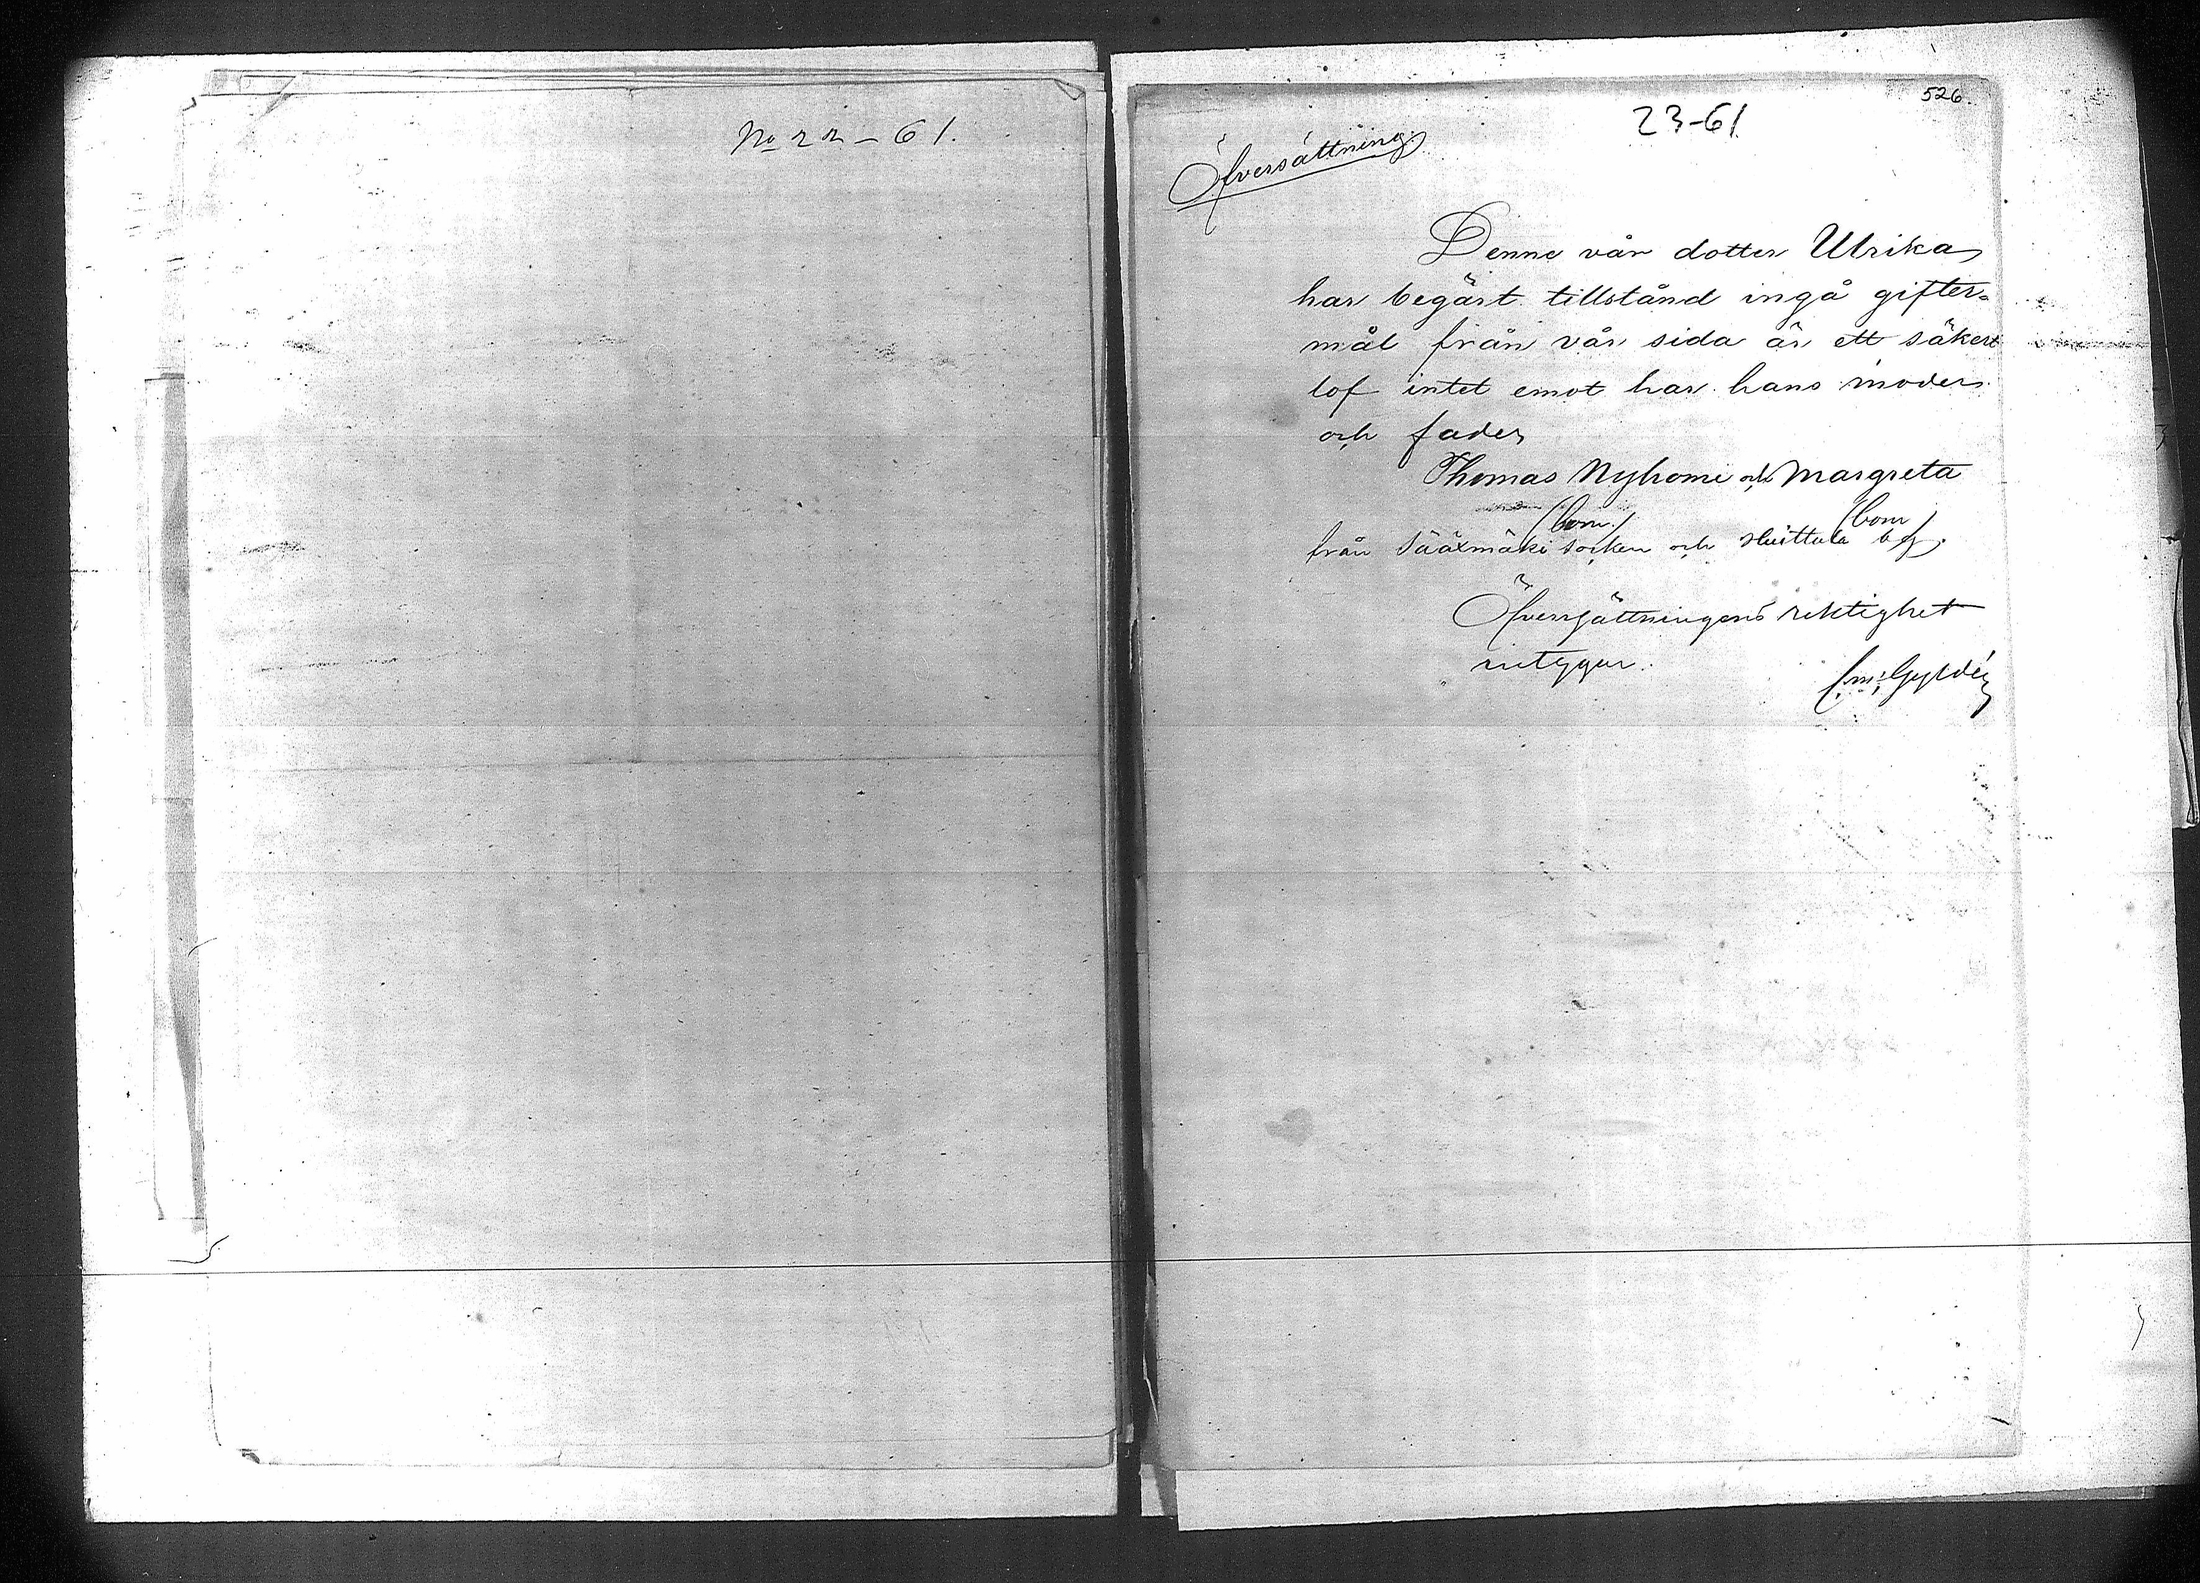 No 22-61.
526.
23-61
Öfversättning.
Denne vår dotter Ulrika
har begärt tillstånd ingå gifter-
mål från vår sida är ett säkert
lof intet emot har hans moder
och fader
Thomas Nyhomi och Margreta
(bom.) (bom)
från Sääxmäki socken och Huittula by.
Öfversättningens riktighet
intygar.
Em: Gyldén